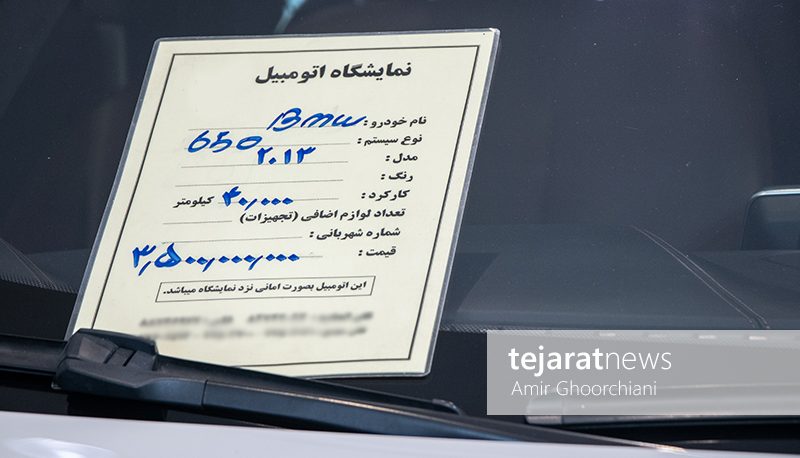 نمایشگاه اتومبیل
نام خودرو : BMW
نوع سیستم : 650
مدل : ۲۰۱۳
رنگ :
کارکرد : ۴۰,۰۰۰ کیلومتر
تعداد لوازم اضافی (تجهیزات)
شماره شهربانی :
قیمت : ۳,۵۰۰,۰۰۰,۰۰۰
این اتومبیل بصورت امانی نزد نمایشگاه میباشد.
tejaratnews
Amir Ghoorchiani